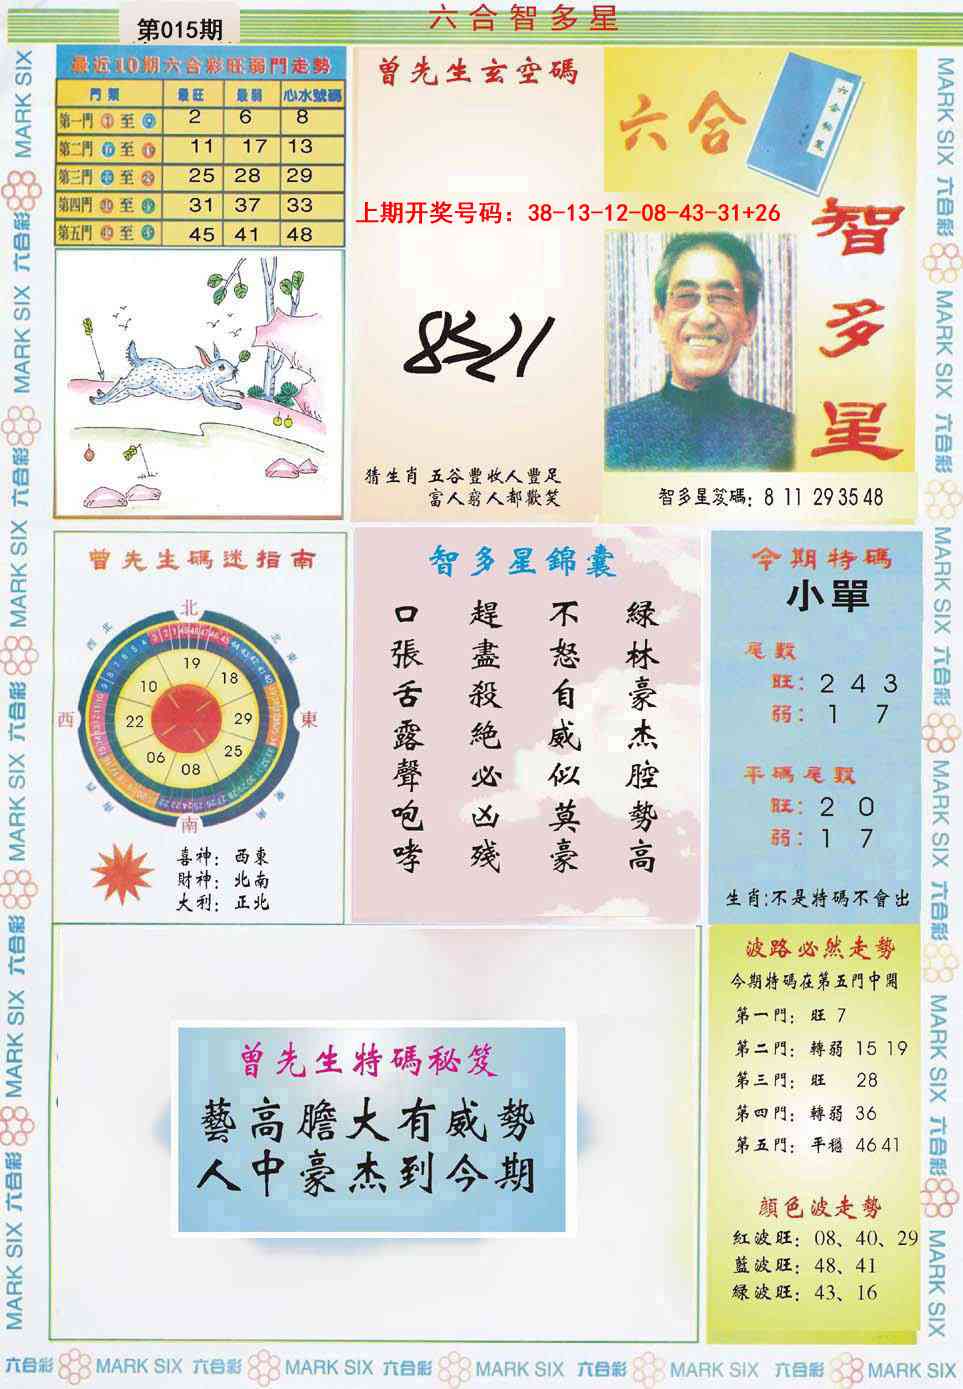 六合智多星
第015期
最近10期六合彩旺弱門走勢
門類 最旺 最弱 心水號碼
第一門 至 2 6 8
第二門 至 11 17 13
第三門 至 25 28 29
第四門 至 31 37 33
第五門 至 45 41 48
曾先生玄空碼
上期开奖号码：38-13-12-08-43-31+26
猜生肖 五谷豐收人豐足
富人窮人都歡笑
六合
智多星
智多星笈碼：8 11 29 35 48
曾先生碼迷指南
北
西北
東北
西
東
西南
東南
南
19
18
29
25
08
06
22
10
喜神：西東
財神：北南
大利：正北
智多星錦囊
綠林豪杰腔勢高
不怒自威似莫豪
趕盡殺絕必凶殘
口張舌露聲咆哮
今期特碼
小單
尾數
旺：2 4 3
弱：1 7
平碼尾數
旺：2 0
弱：1 7
生肖:不是特碼不會出
曾先生特碼秘笈
藝高膽大有威勢
人中豪杰到今期
波路必然走勢
今期特碼在第五門中開
第一門：旺 7
第二門：轉弱 15 19
第三門：旺 28
第四門：轉弱 36
第五門：平穩 46 41
顔色波走勢
紅波旺：08、40、29
藍波旺：48、41
綠波旺：43、16
六合彩 MARK SIX 六合彩 MARK SIX 六合彩 MARK SIX 六合彩 MARK SIX 六合彩 MARK SIX